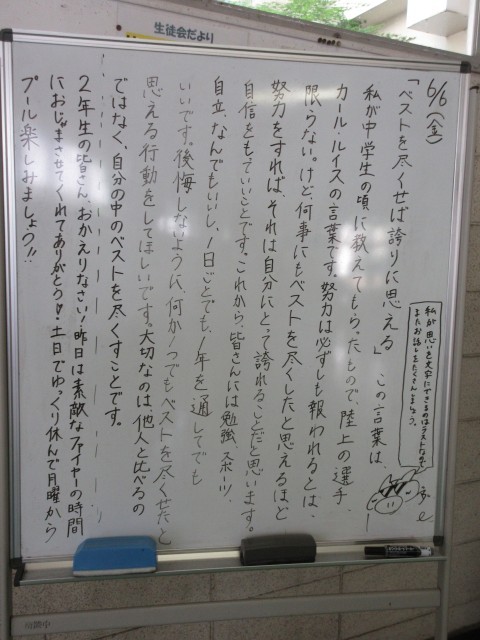 生徒会だより
6/6（金）
「ベストを尽くせば誇りに思える」この言葉は、
私が中学生の頃に教えてもらったもので、陸上の選手、
カール・ルイスの言葉です。努力は必ずしも報われるとは、
限らない。けど、何事にもベストを尽くしたと思えるほど
努力をすれば、それは自分にとって誇れることだと思います。
自信をもっていいことです。これから、皆さんには勉強、スポーツ、
自立、なんでもいいし、1日ごとでも、1年を通してでも
いいです。後悔しないように、何か1つでもベストを尽くせた、と
思える行動をしてほしいです。大切なのは、他人と比べるの
ではなく、自分の中のベストを尽くすことです。
2年生の皆さん、おかえりなさい！昨日は素敵なファイヤーの時間
におじゃまさせてくれてありがとう！土日でゆっくり休んで月曜から
プール楽しみましょう！！
私が思いを文字にできるのはラストなので
またお話したくさんしましょう。